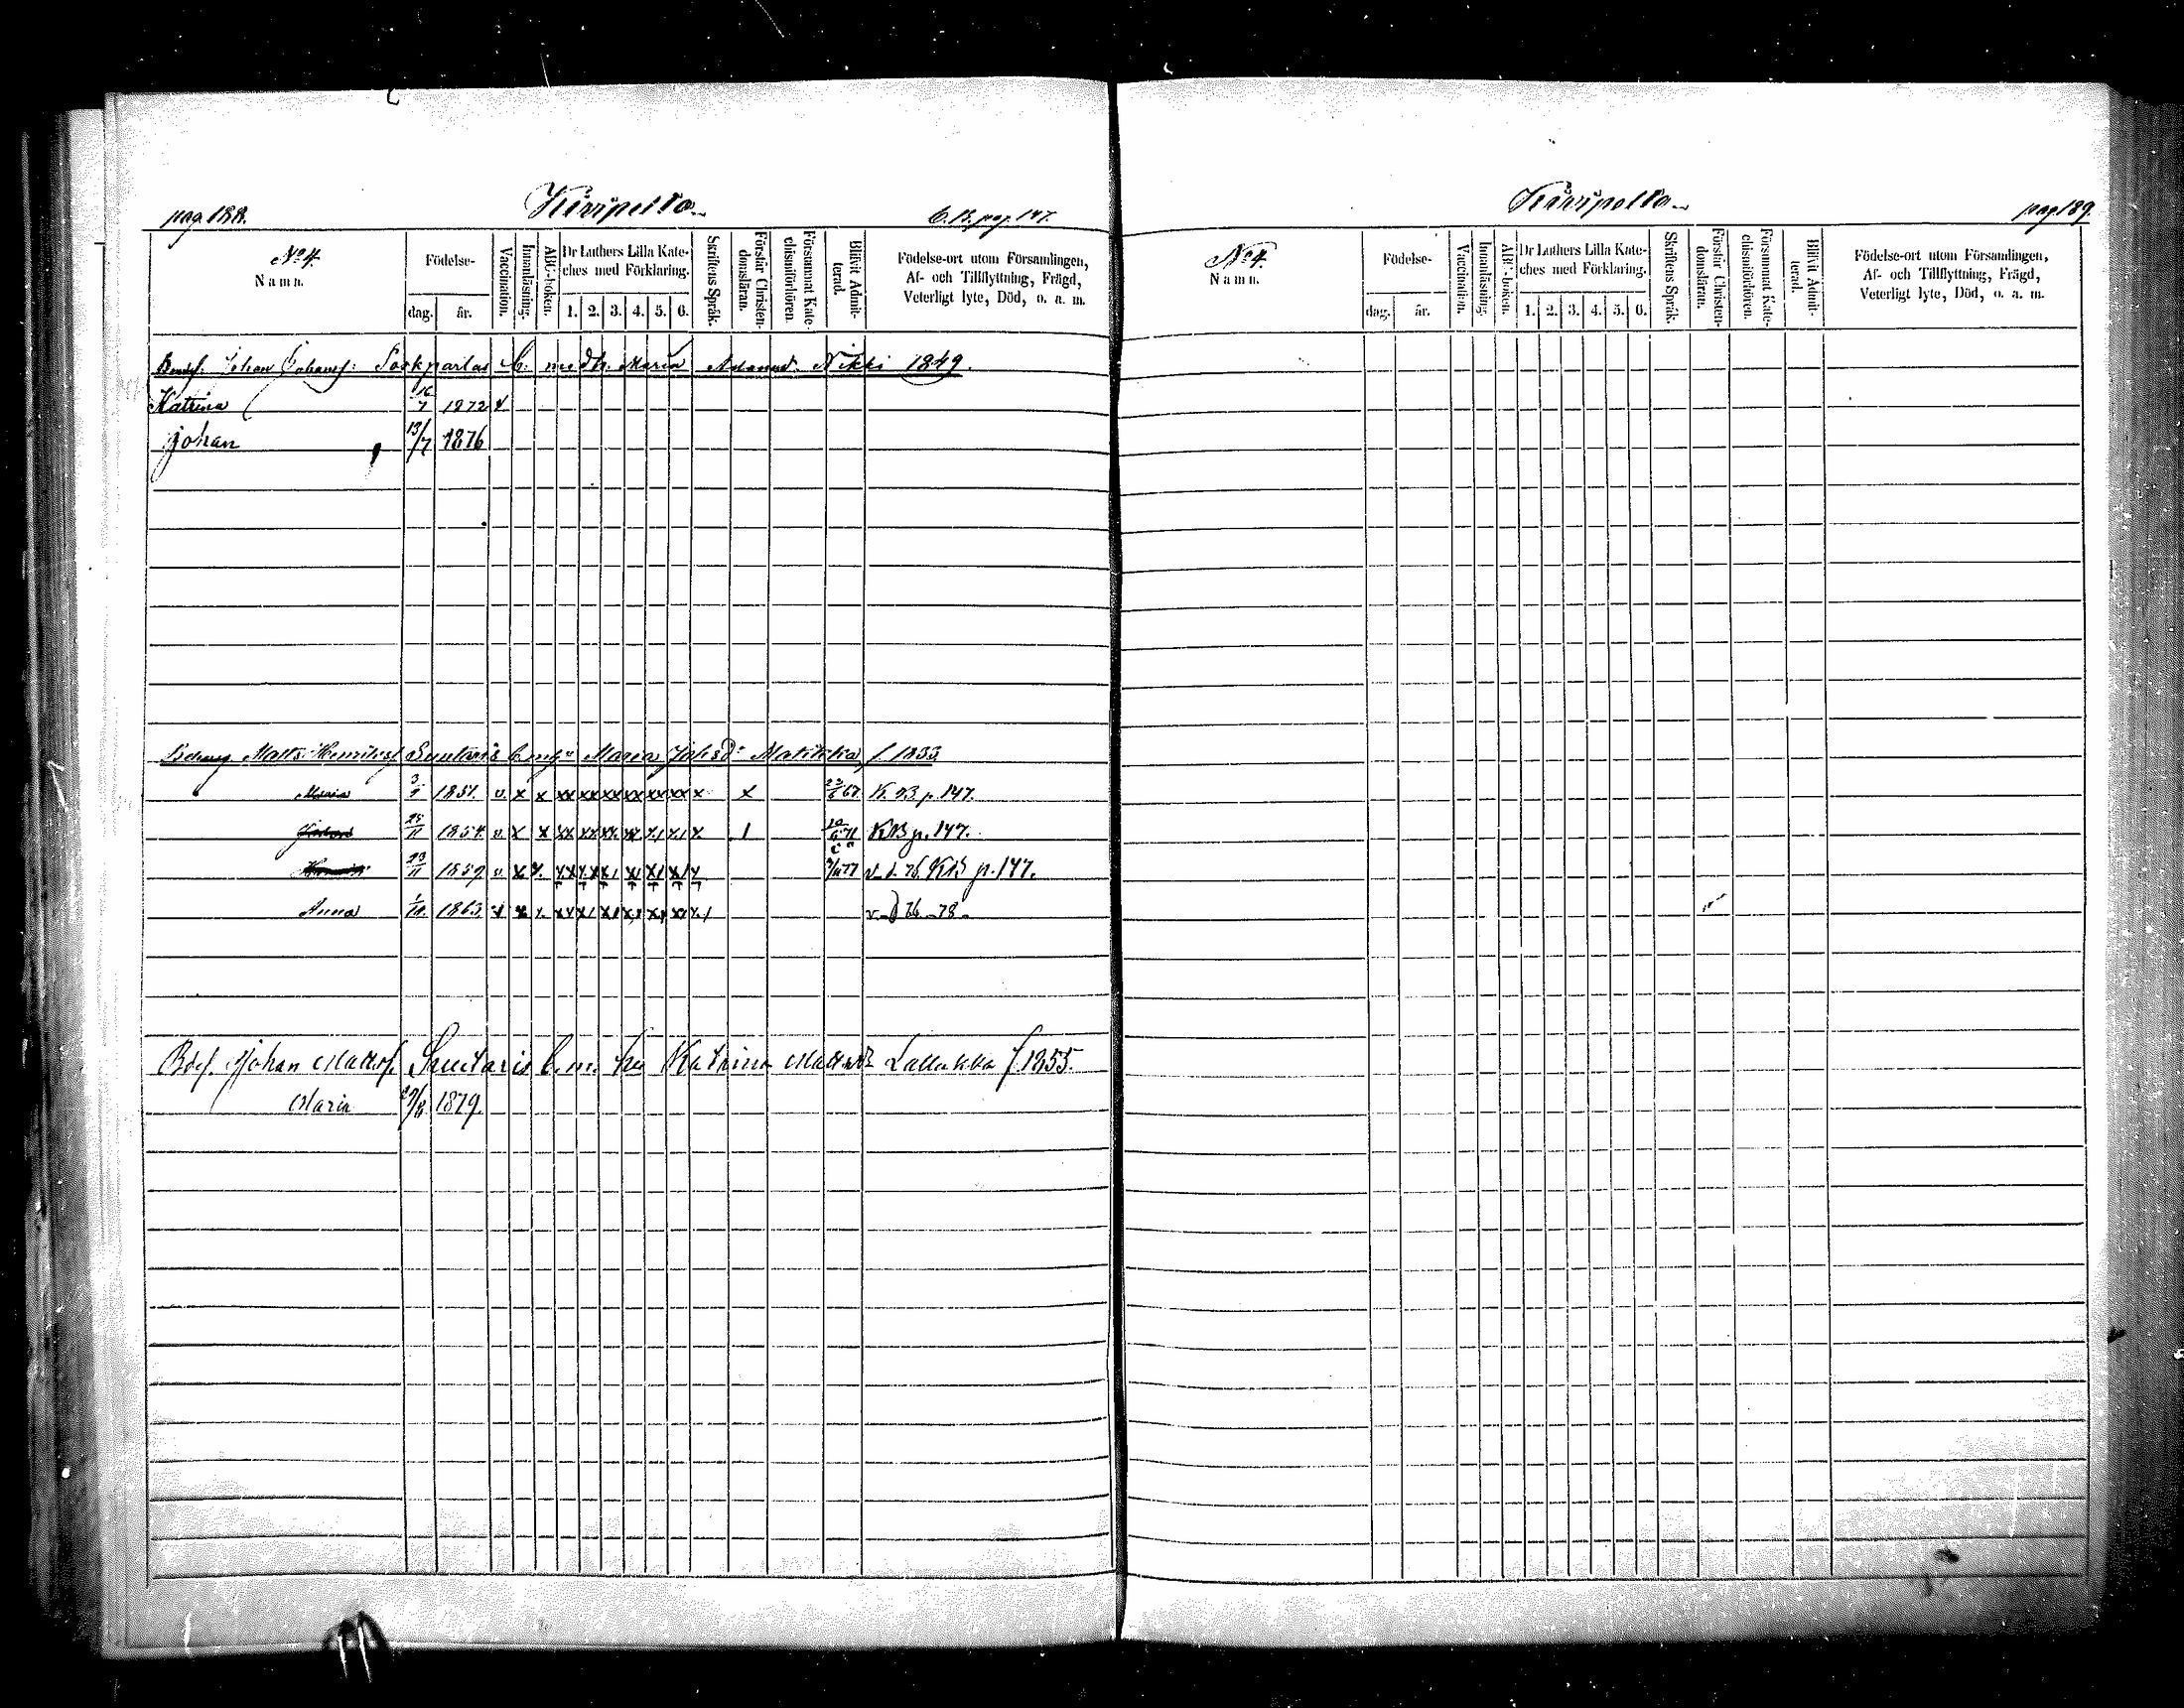 pag. 188.
Kiiripelto
C.B. pag. 147.
No 4.
Namn.
Födelse-
dag. år.
Vaccination.
Innanläsning.
ABC-boken.
Dr Luthers Lilla Kate-
ches med Förklaring.
1. 2. 3. 4. 5. 6.
Skriftens Språk.
Förstår Christen-
domsläran.
Försummat Kate-
chismiförhören.
Blifvit Admit-
terad.
Födelse-ort utom Församlingen,
Af- och Tillflyttning, Frägd,
Veterligt lyte, Död, o. a. m.
Johan Johansf: b. med h. Maria Adamsd. Nikki 1849.
Katrina 16/7 1872 v
Johan 13/7 1876
Matts Henriksf Suutaris b. m. h. Maria Johsd: Matikka f. 1833
Maria 1851. v. x x xx xx xx xx xx xx x x K.B p. 147.
25/11 1854. v. x x xx xx xx x 1 KB p. 147.
23/11 1859. v. KB p. 147.
Anna 1863.
Bdsf. Johan Mattsf. Suutaris b. m. hu Katrina Mattsdr Lallukka f. 1855.
Maria 29/8 1879.
Kiiripelto
pag 189.
No 4.
Namn.
Födelse-
dag. år.
Vaccination.
Innanläsning.
ABC-boken.
Dr Luthers Lilla Kate-
ches med Förklaring.
1. 2. 3. 4. 5. 6.
Skriftens Språk.
Förstår Christen-
domsläran.
Försummat Kate-
chismiförhören.
Blifvit Admit-
terad.
Födelse-ort utom Församlingen,
Af- och Tillflyttning, Frägd,
Veterligt lyte, Död, o. a. m.